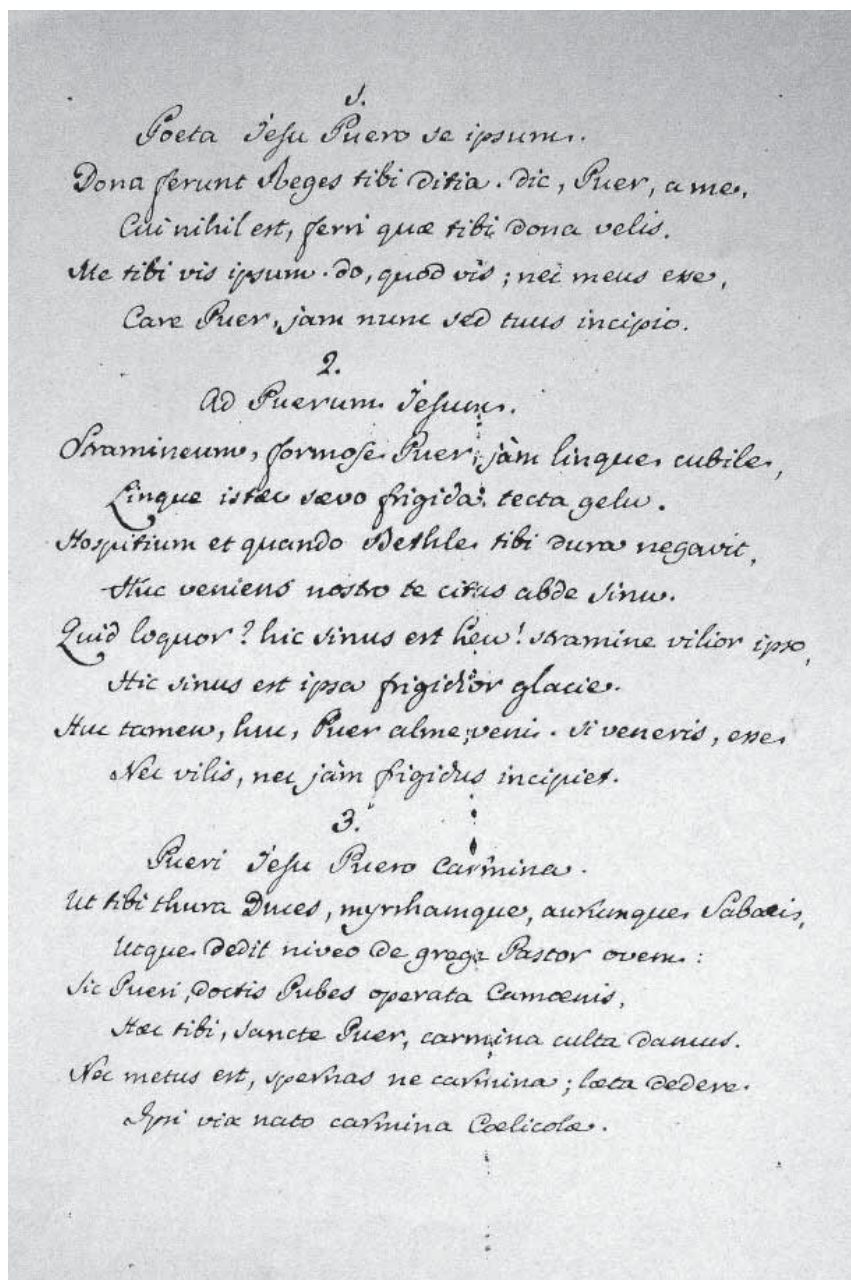 1.
Poeta Jesu Puero se ipsum.
Dona ferunt Reges tibi ditia. dic, Puer, a me,
Cui nihil est, ferri quæ tibi dona velis.
Me tibi vis ipsum. do, quod vis; nec meus esse,
Care Puer, jam nunc sed tuus incipio.
2.
Ad Puerum Jesum.
Stramineum, formose Puer, jàm linque cubile,
Linque istæc sævo frigida tecta gelu.
Hospitium et quando Bethle tibi dura negavit,
Huc veniens nostro te citus abde sinu.
Quid loquor? hic sinus est heu! stramine vilior ipso,
Hic sinus est ipsa frigidior glacie.
Huc tamen, huc, Puer alme, veni. si veneris, esse
Nec vilis, nec jàm frigidus incipiet.
3.
Pueri Jesu Puero Carmina.
Ut tibi thura Duces, myrrhamque, aurumque Sabæis,
Utque dedit niveo de grege Pastor ovem:
Sic Pueri, doctis Pubes operata Camœnis,
Hæc tibi, sancte Puer, carmina culta damus.
Nec metus est, spernas ne carmina; læta dedere
Ipsi vix nato carmina Cœlicolæ.